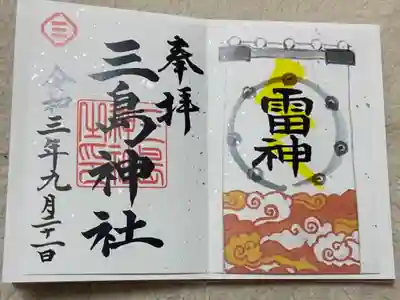 奉拝
三島神社
令和三年九月二十一日
三
雷神